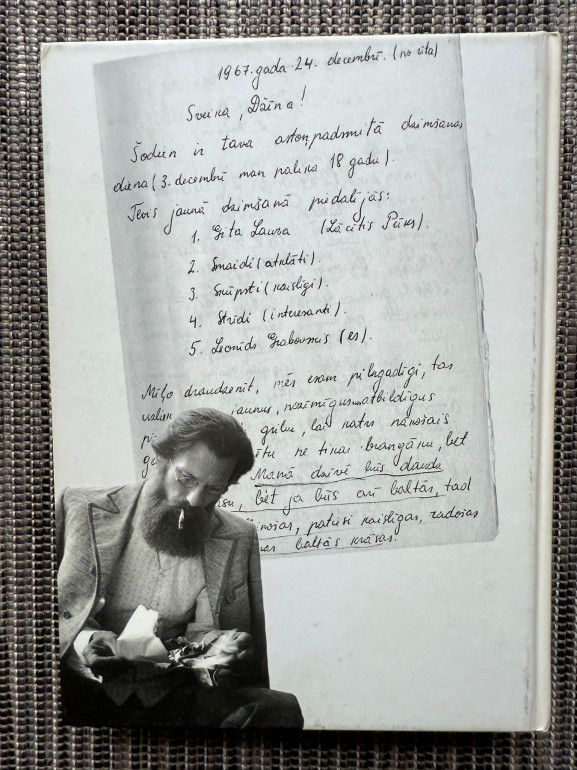 1967. gada 24. decembrī. (no rīta)
Sveika, Daina!
Šodien ir tava astoņpadsmitā dzimšanas
diena (3. decembrī man palika 18 gadu).
Tevis jaunā dzimšanā piedalījās:
1. Gita Laura (Lācītis Pūks).
2. Smaidi (atklāti).
3. Skūpsti (kaislīgi).
4. Strīdi (interesanti).
5. Leonīds Grabovskis (es).
Mīļo draudzenīt, mēs esam pilngadīgi, tas
jaunus, nozīmīgus atbildīgus
gribu, lai katrs nākošais
ne tikai brangāku, bet
Manā dzīvē būs daudz
bet ja būs arī baltās, tad
patiesi kaislīgas, radošas
baltās krāsas.